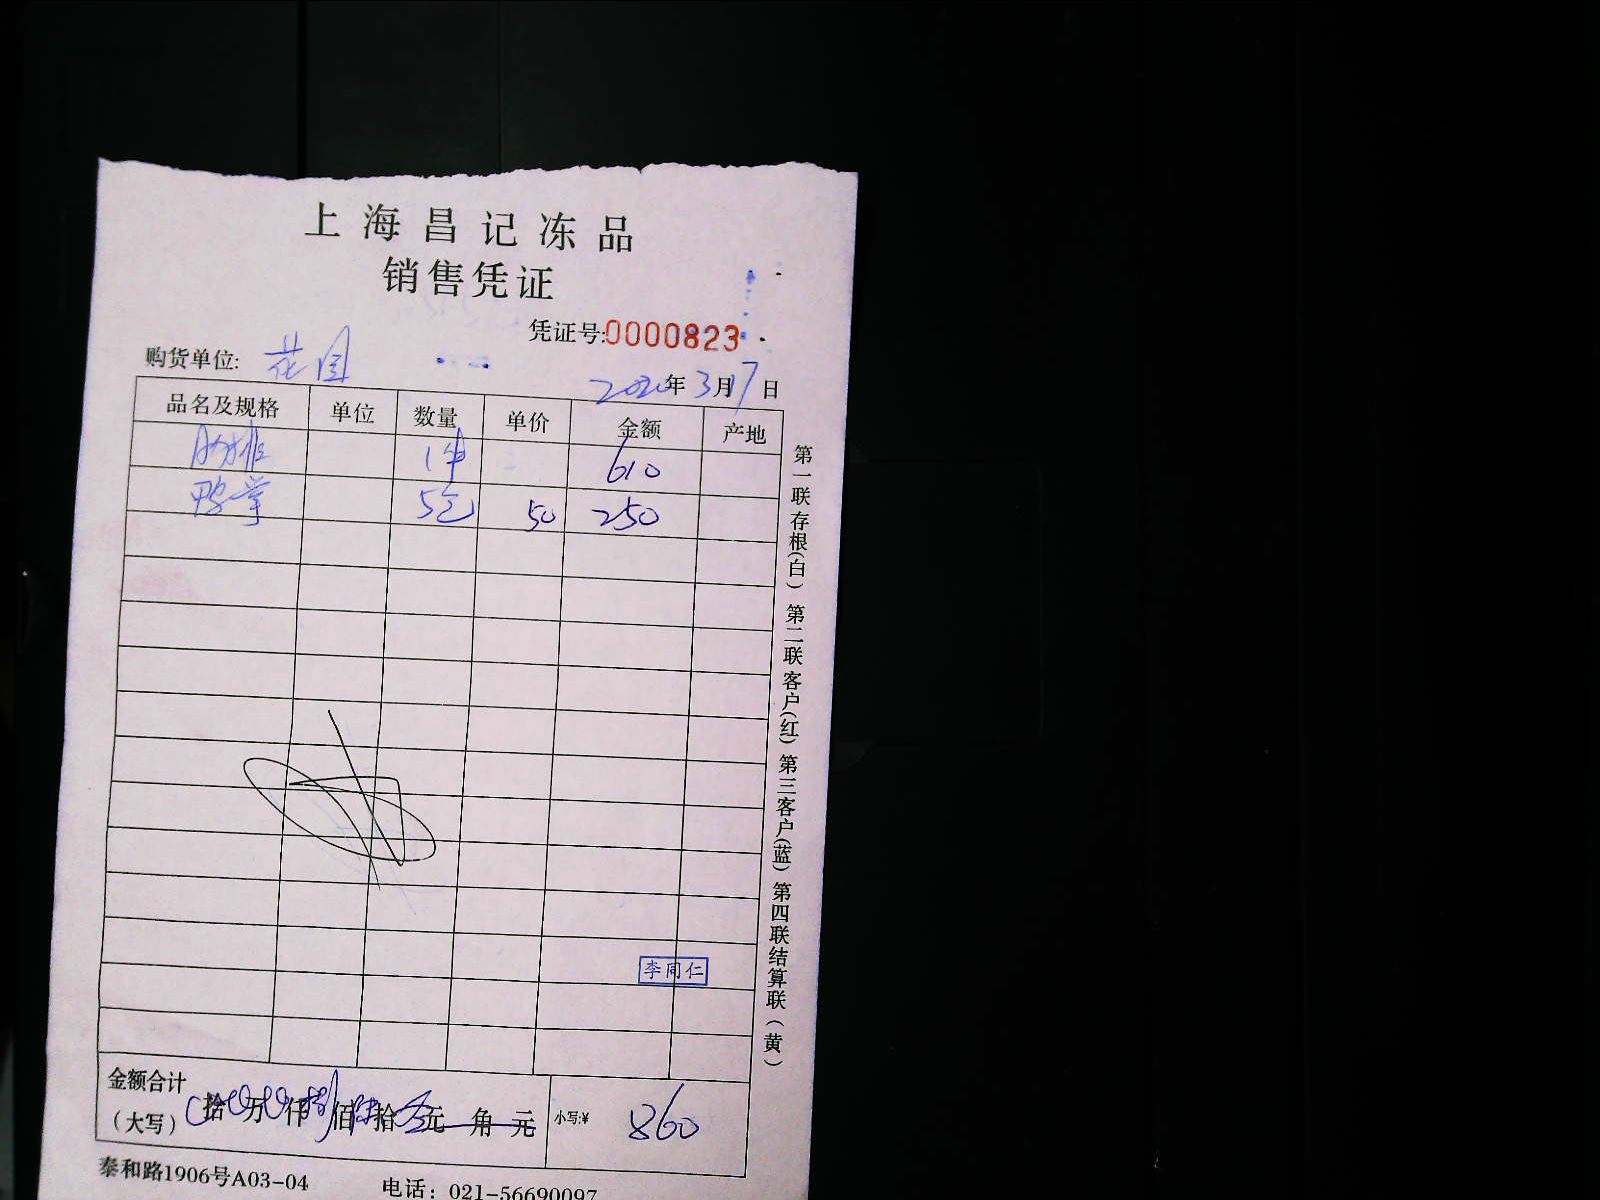 上海昌记冻品
销售凭证
凭证号:0000823
购货单位: 花园
2020年3月17日
品名及规格 单位 数量 单价 金额 产地
肋排 1件 610
鸭掌 5包 50 250
李同仁
金额合计
(大写) 拾 万 仟 捌佰陆拾 元 角 元 小写:¥ 860
泰和路1906号A03-04 电话：021-56690097
第一联存根(白) 第二联客户(红) 第三客户(蓝) 第四联结算联(黄)